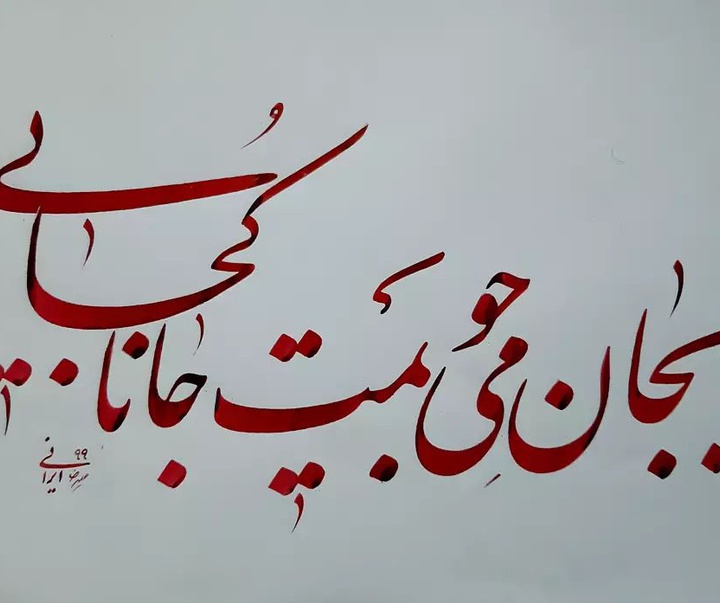 بجان می جویمت جانا کُجایی
ایرانی ۹۹